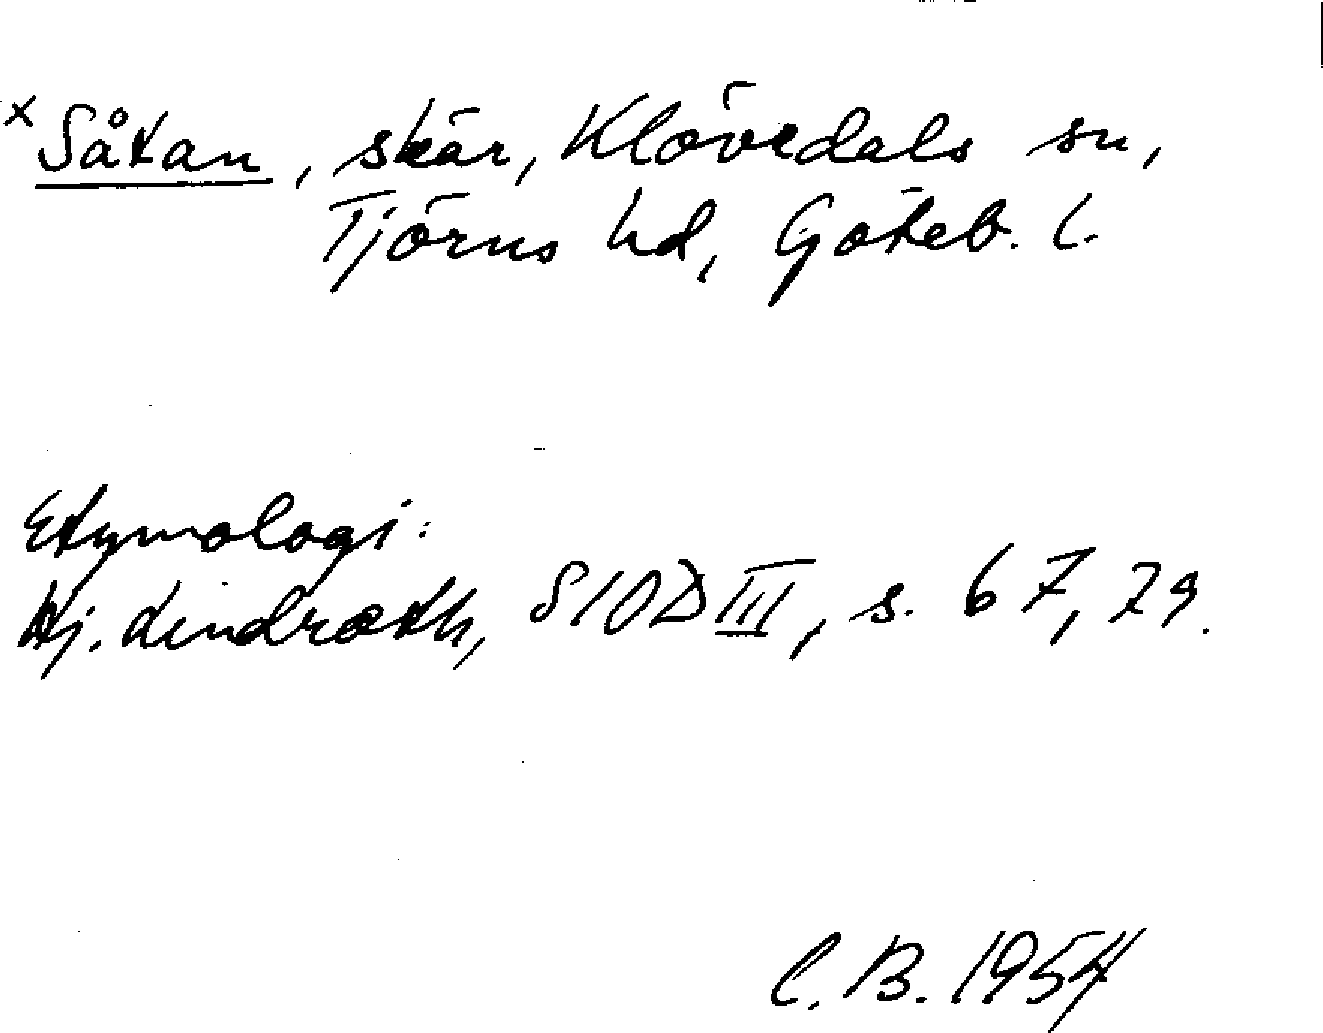 x Såtan, skär, Klövedals sn,
Tjörns hd, Göteb. l.
Etymologi:
Hj. Lindroth, SIOD III, s. 67, 79.
C. B. 1954